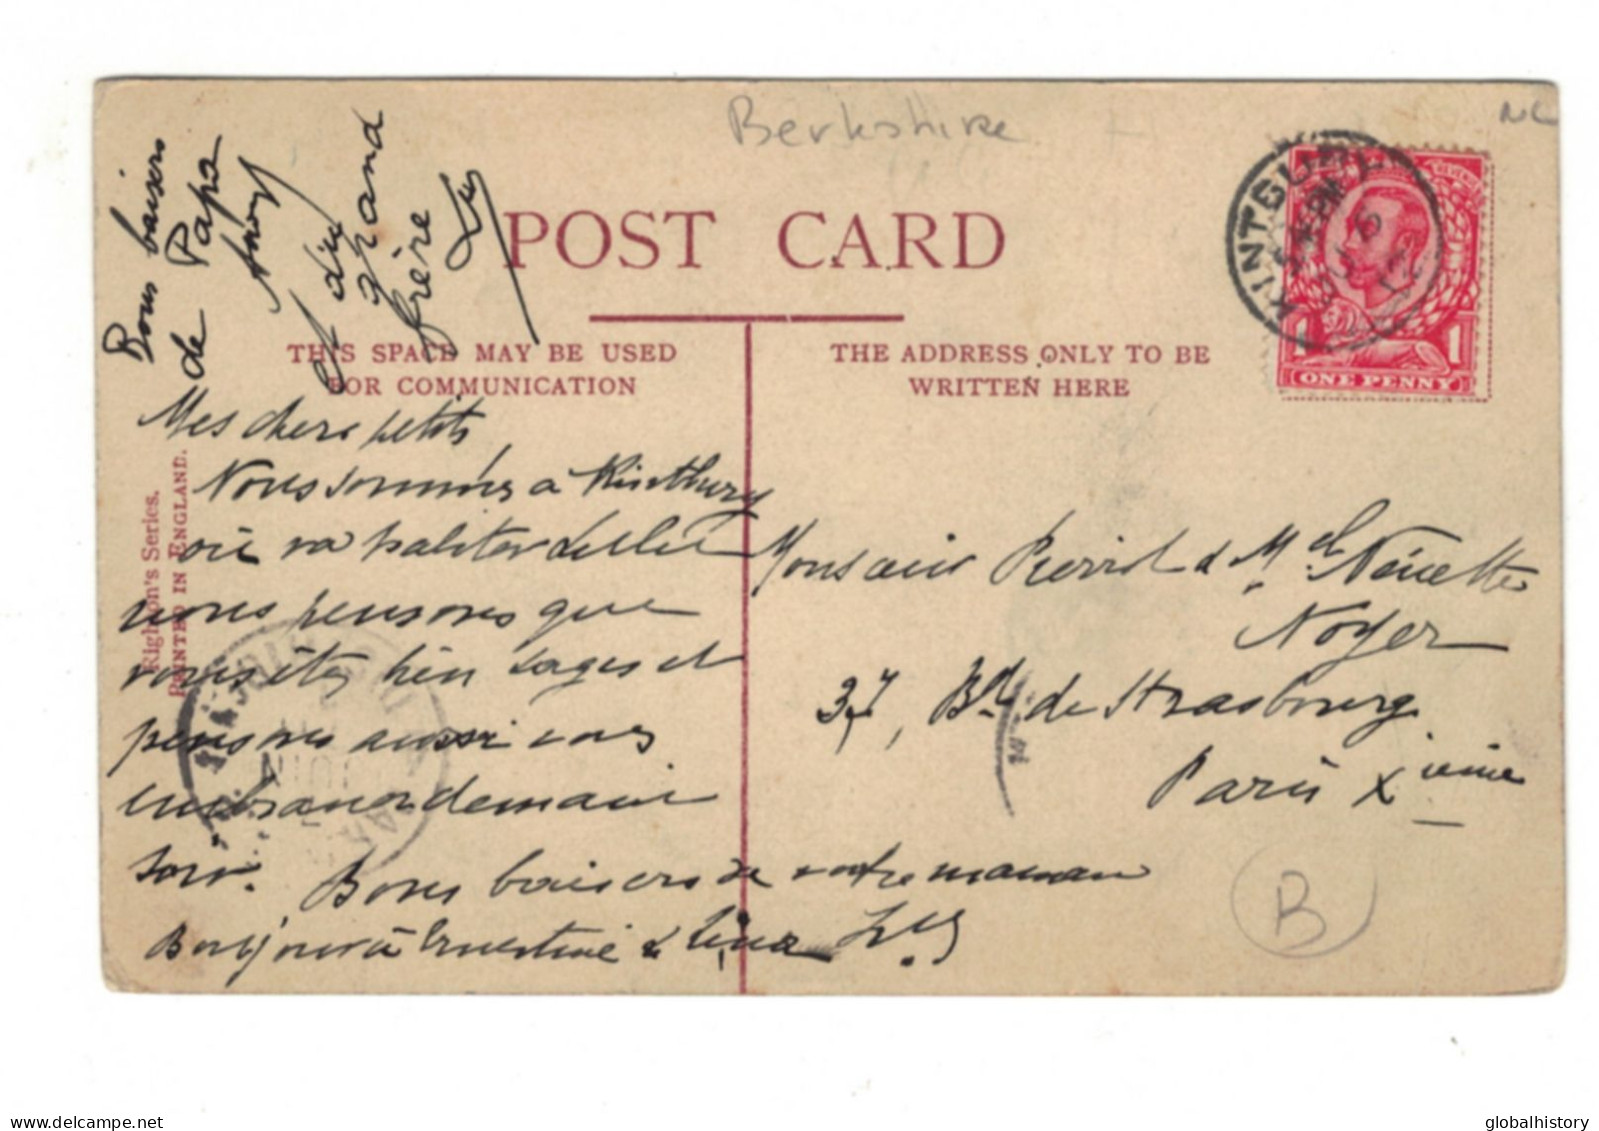 Berkshire
NL
Bons baisers
de Papa
et du
grand
frère
POST CARD
THIS SPACE MAY BE USED
FOR COMMUNICATION
THE ADDRESS ONLY TO BE
WRITTEN HERE
KINTBURY
PM
ONE PENNY
1 1
Righton's Series.
PRINTED IN ENGLAND.
Mes chers petits
Nous sommes à Kintbury
où va habiter
nous pensons que
vous êtes bien sages et
pensons aussi vous
embrasser demain
soir. Bons baisers de votre maman
Bonjour à Ernestine &
Monsieur Pierrot & Melle Nénette
Noyer
37, Bd de Strasbourg
Paris Xième
B
globalhistory